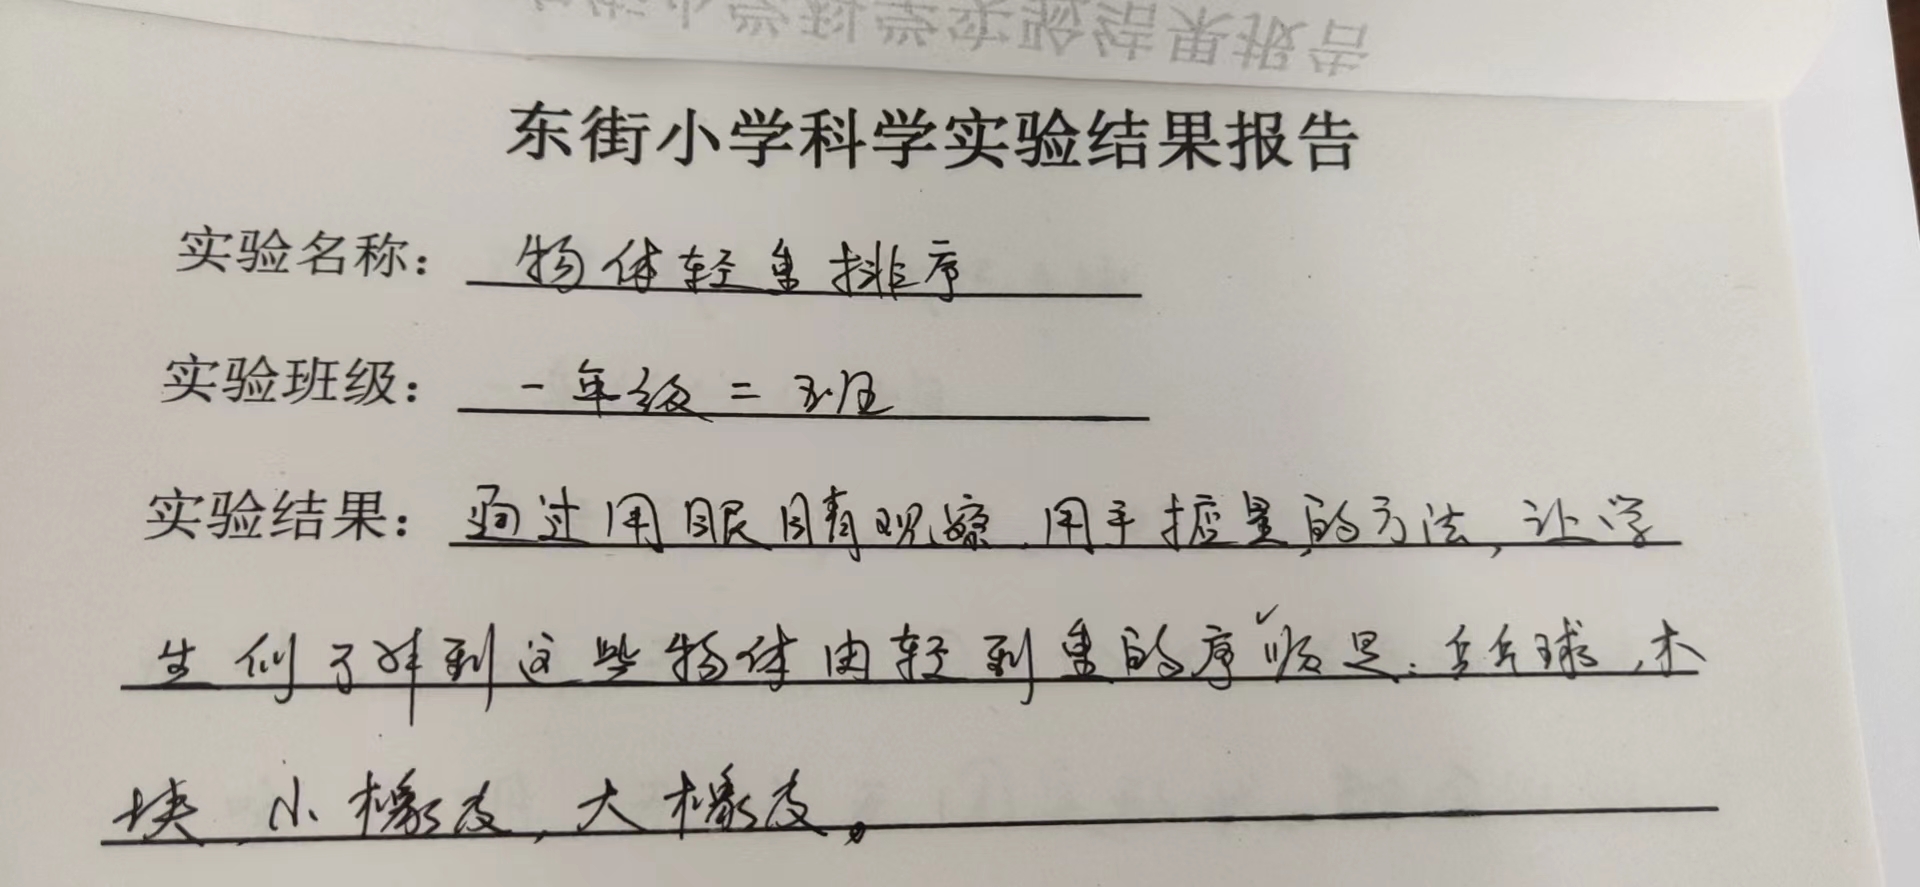 东街小学科学实验结果报告
东街小学科学实验结果报告
实验名称：物体轻重排序
实验班级：一年级二班
实验结果：通过用眼睛观察，用手掂量的方法，让学
生们了解到这些物体由轻到重的序顺是：乒乓球，木
块，小橡皮，大橡皮。